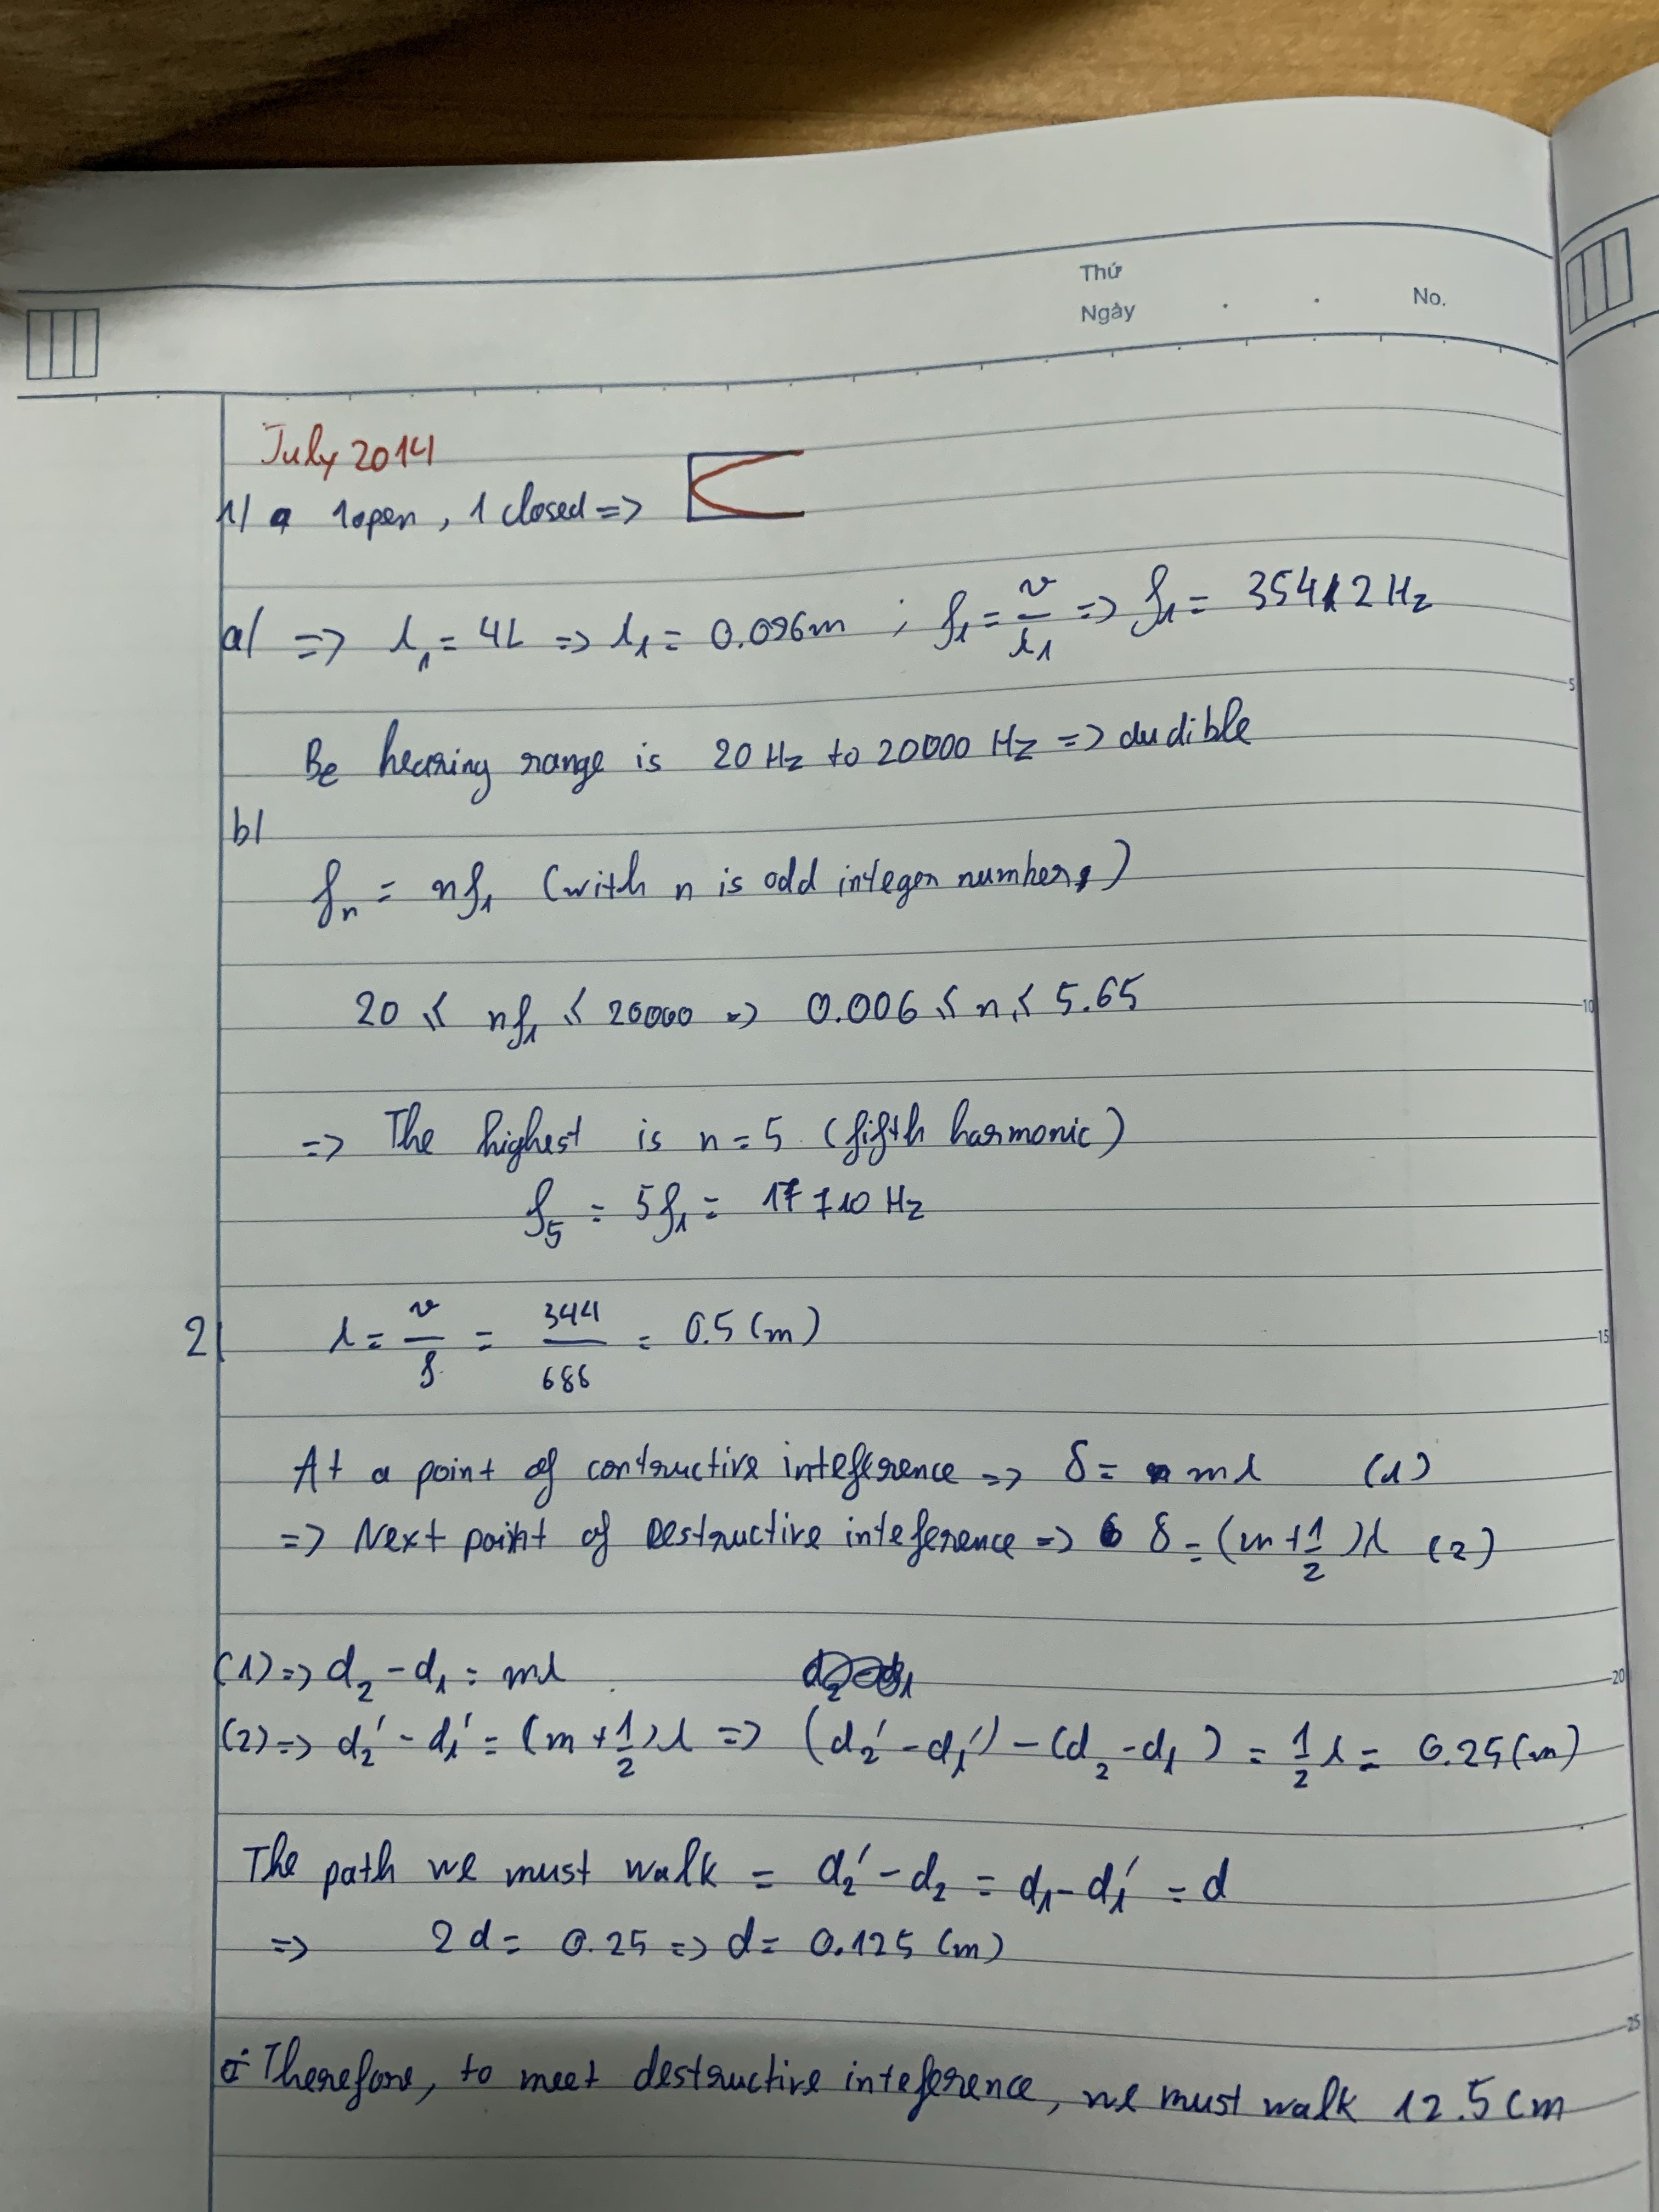 Thứ
Ngày . . No.
July 2014
1/ a 1 open, 1 closed =>
a/ => λ₁ = 4L => λ₁ = 0.096m ; f₁ = v/λ₁ => f₁ = 3542 Hz
Be hearing range is 20 Hz to 20000 Hz => audible
b/
fₙ = nf₁ (with n is odd integer numbers)
20 ≤ nf₁ ≤ 20000 => 0.006 ≤ n ≤ 5.65
=> The highest is n = 5 (fifth harmonic)
f₅ = 5f₁ = 17710 Hz
2/ λ = v/f = 344/686 = 0.5 (m)
At a point of contructive inteference => δ = mλ (1)
=> Next point of Destructive inteference => δ = (m + 1/2)λ (2)
(1) => d₂ - d₁ = mλ
(2) => d₂' - d₁' = (m + 1/2)λ => (d₂' - d₁') - (d₂ - d₁) = 1/2 λ = 0.25 (m)
The path we must walk = d₂' - d₂ = d₁ - d₁' = d
=> 2d = 0.25 => d = 0.125 (m)
Therefore, to meet destructive inteference, we must walk 12.5 cm
5
10
15
20
25